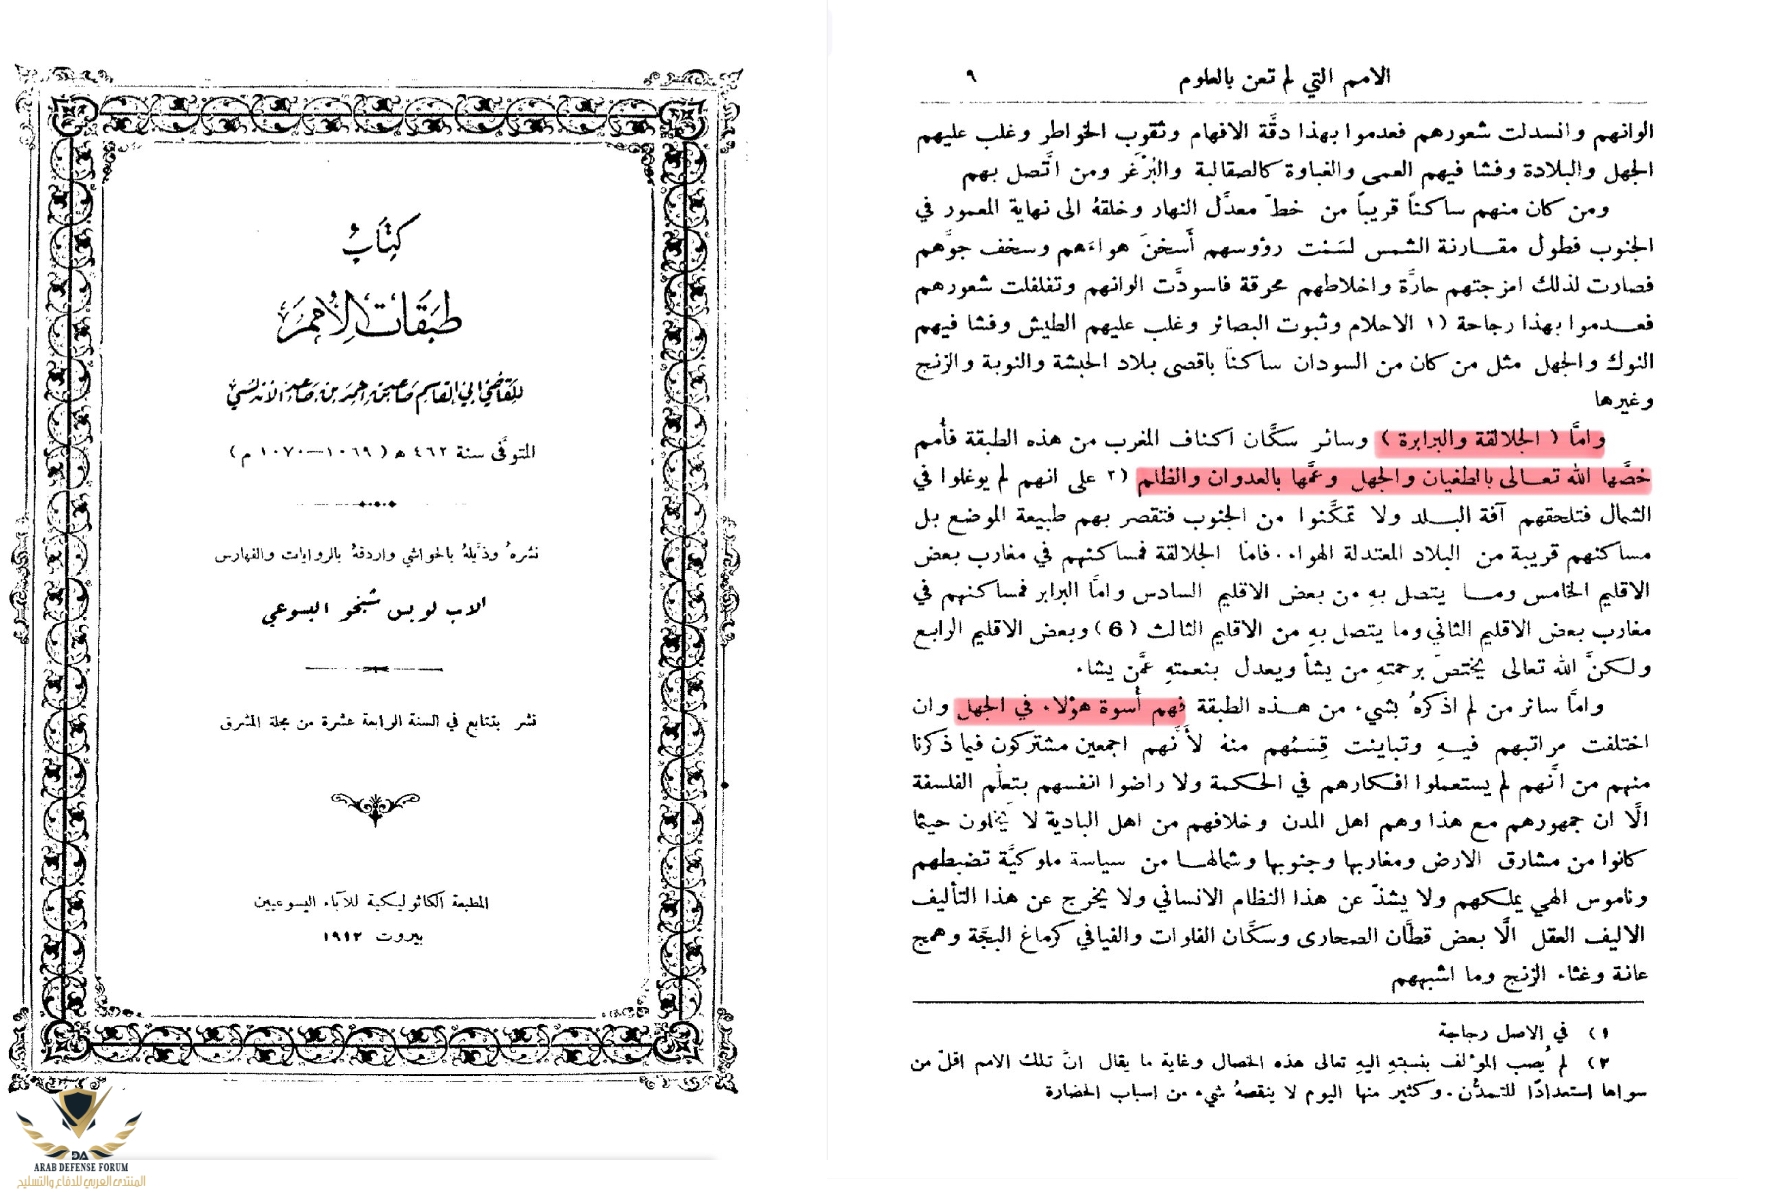 كتاب
طبقات الأمم
للقاضي ابي القاسم صاعد بن احمد بن صاعد الاندلسي
المتوفى سنة ٤٦٢ ه (١٠٦٩—١٠٧٠ م)
نشرهُ وذيَّلهُ بالحواشي واردفهُ بالروايات والفهارس
الاب لويس شيخو اليسوعي
نشر بتتابع في السنة الرابعة عشرة من مجلة المشرق
المطبعة الكاثوليكية للآباء اليسوعيين
بيروت ١٩١٢
DA
ARAB DEFENSE FORUM
المنتدى العربي للدفاع والتسليح
الامم التي لم تعن بالعلوم ٩
الوانهم وانسدلت شعورهم فعدموا بهذا دقَّة الافهام وثقوب الخواطر وغلب عليهم
الجهل والبلادة وفشا فيهم العمى والغباوة كالصقالبة والبُرْغَر ومن اتَّصل بهم
ومن كان منهم ساكناً قريباً من خطّ معدَّل النهار وخلفهُ الى نهاية المعمور في
الجنوب فطول مقارنة الشمس لسَمْت رؤوسهم أَسخنَ هواءَهم وسخف جوَّهم
فصارت لذلك امزجتهم حارَّة واخلاطهم محرقة فاسودَّت الوانهم وتفلفلت شعورهم
فعدموا بهذا رجاحة (١ الاحلام وثبوت البصائر وغلب عليهم الطيش وفشا فيهم
النوك والجهل مثل من كان من السودان ساكناً باقصى بلاد الحبشة والنوبة والزنج
وغيرها
وامَّا (الجلالقة والبرابرة) وسائر سكَّان اكناف المغرب من هذه الطبقة فأُمم
خصَّها الله تعالى بالطغيان والجهل وعمَّها بالعدوان والظلم (٢ على انهم لم يوغلوا في
الشمال فتلحقهم آفة البلد ولا تمكَّنوا من الجنوب فتقصر بهم طبيعة الموضع بل
مساكنهم قريبة من البلاد المعتدلة الهواء. فامَّا الجلالقة فمساكنهم في مغارب بعض
الاقليم الخامس وما يتصل بهِ من بعض الاقليم السادس وامَّا البرابر فمساكنهم في
مغارب بعض الاقليم الثاني وما يتصل بهِ من الاقليم الثالث (6) وبعض الاقليم الرابع
ولكنَّ الله تعالى يختصّ برحمتهِ من يشأ ويعدل بنعمتهِ عمَّن يشاء.
وامَّا سائر من لم اذكرهُ بشيء من هذه الطبقة فهم أُسوة هؤلاء في الجهل وان
اختلفت مراتبهم فيهِ وتباينت قِسَمُهم منهُ لأَنَّهم اجمعين مشتركون فيما ذكرنا
منهم من أَنَّهم لم يستعملوا افكارهم في الحكمة ولا راضوا انفسهم بتعلّم الفلسفة
الَّا ان جمهورهم مع هذا وهم اهل المدن وخلافهم من اهل البادية لا يخلون حيثما
كانوا من مشارق الارض ومغاربها وجنوبها وشمالها من سياسة ملوكيَّة تضبطهم
وناموس الهي يملكهم ولا يشذّ عن هذا النظام الانساني ولا يخرج عن هذا التأليف
الاليف العقل الَّا بعض قطَّان الصحارى وسكَّان الفلوات والفيافي كرماغ البجَّة وهمج
عانة وغثاء الزنج وما اشبههم
١) في الاصل رجاجة
٢) لم يُصب المؤلف بنسبتهِ اليهِ تعالى هذه الخصال وغاية ما يقال انَّ تلك الامم اقلّ من
سواها استعدادًا للتمدُّن. وكثير منها اليوم لا ينقصهُ شيء من اسباب الحضارة